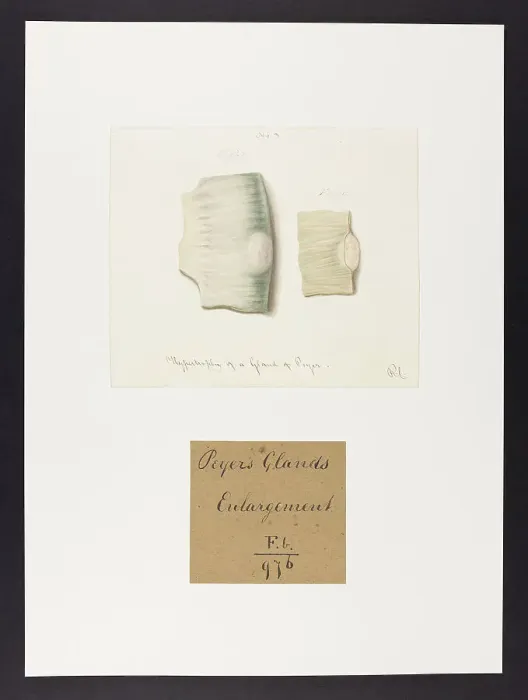 Hypertrophy of a Gland of Peyer.
Peyer's Glands
Enlargement
F.b.
97b